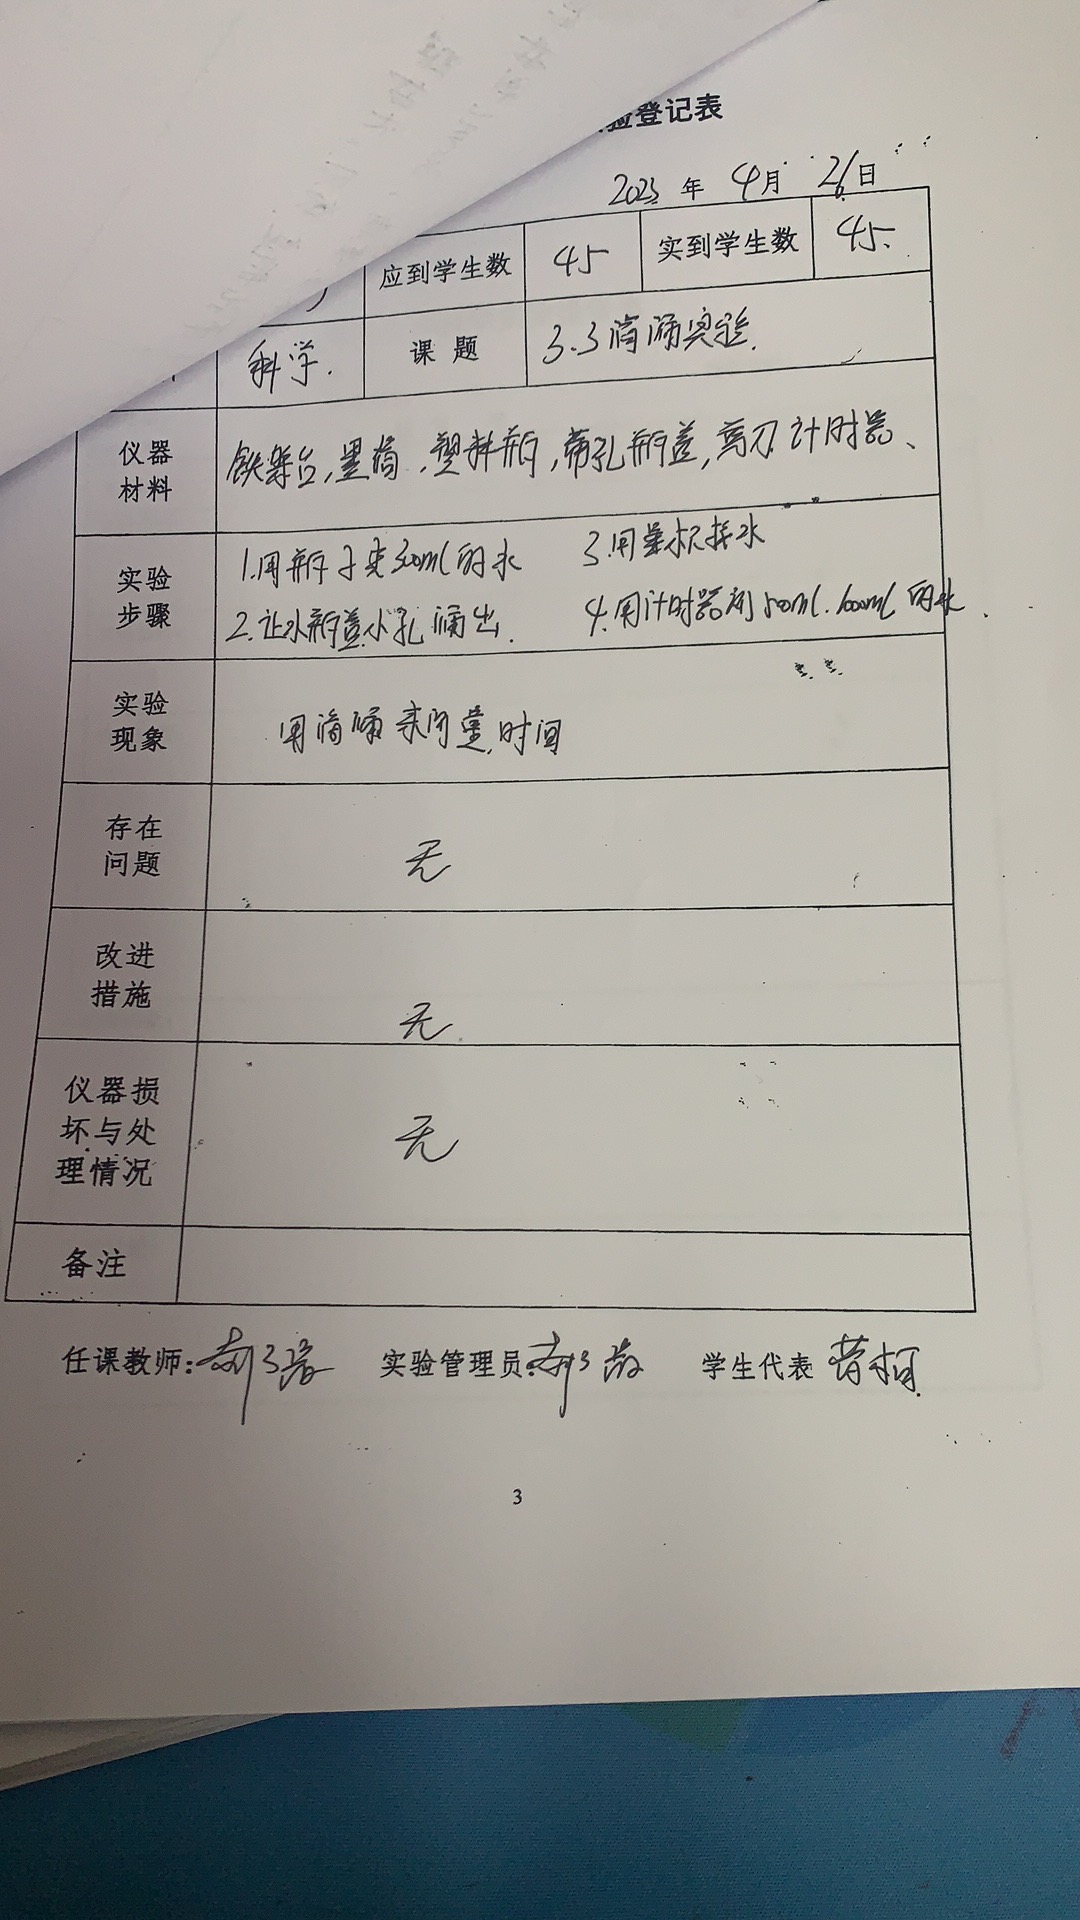 验登记表
2023 年 4月 26日
应到学生数 45 实到学生数 45.
科学. 课 题 3.3滴漏实验.
仪器
材料
铁架台,量筒,塑料瓶,带孔瓶盖,剪刀 计时器、
实验
步骤
1.用瓶子装300ml的水 3.用量杯接水
2.让水瓶盖小孔滴出. 4.用计时器测50ml.100ml的水.
实验
现象
用滴漏来测量时间
存在
问题
无
改进
措施
无
仪器损
坏与处
理情况
无
备注
任课教师: 实验管理员: 学生代表
3